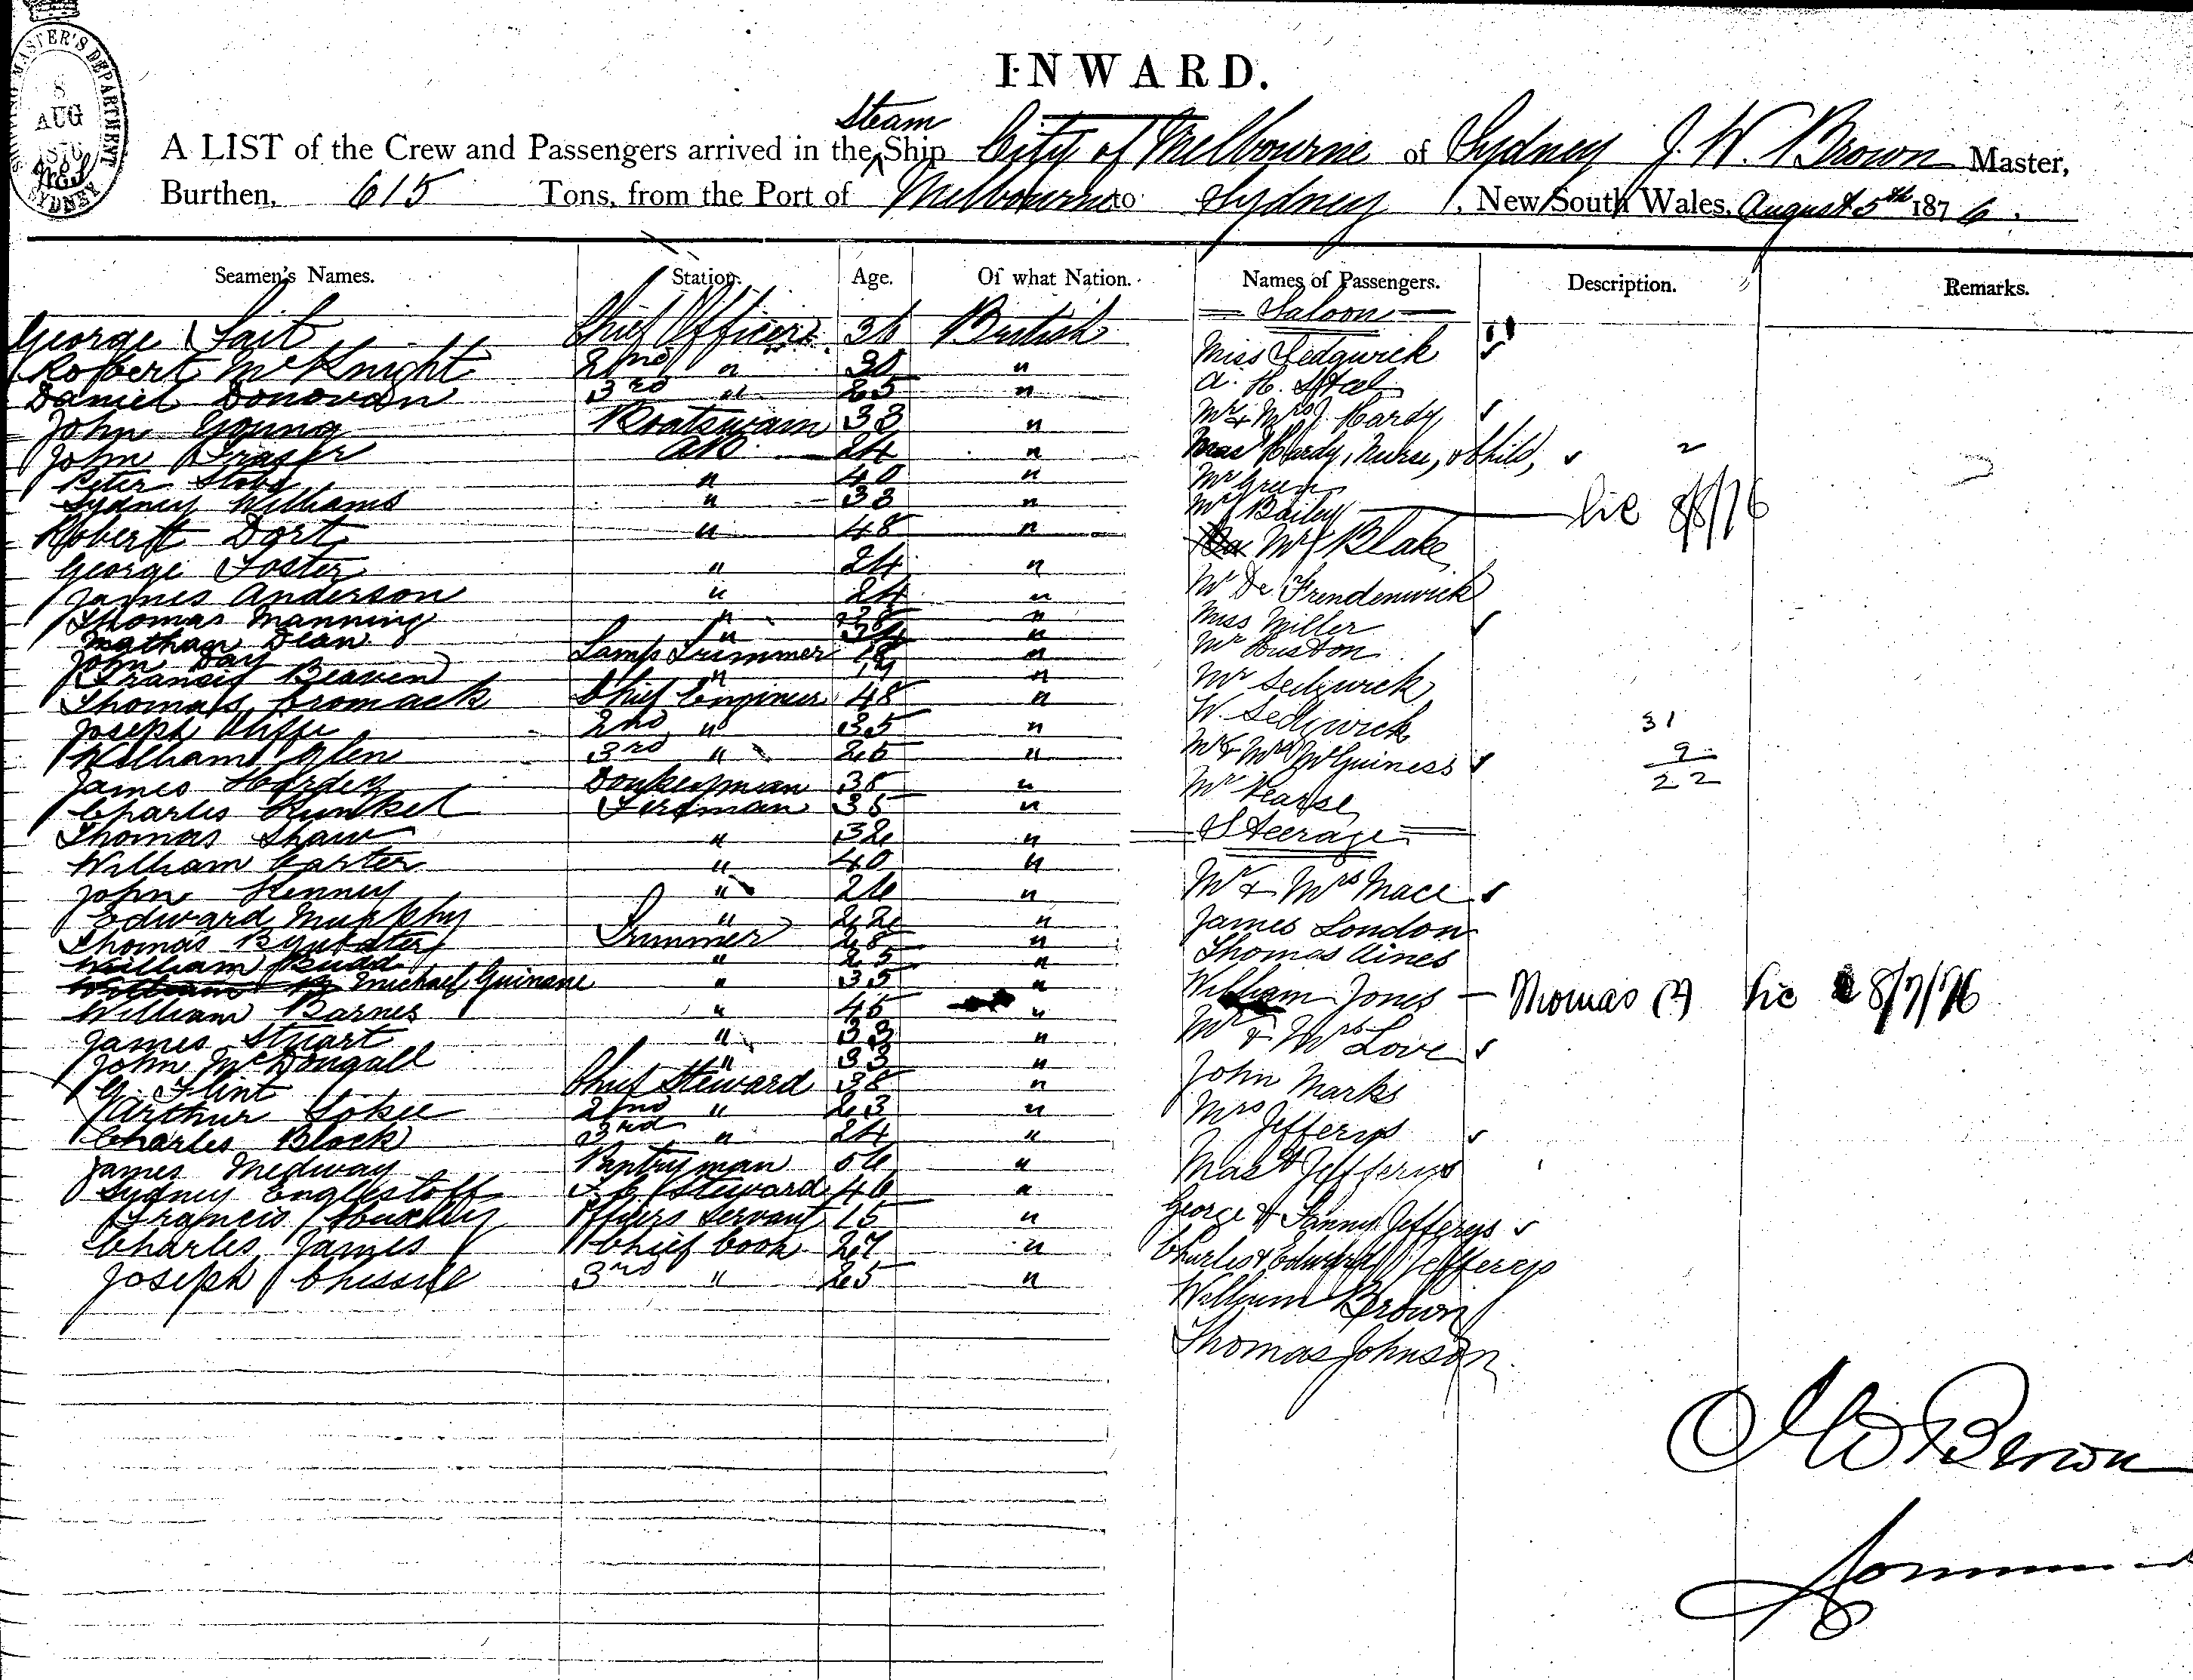 SHIPPING MASTER'S DEPARTMENT
8
AUG
1876
SYDNEY
INWARD.
Steam
A LIST of the Crew and Passengers arrived in the ^ Ship City of Melbourne of Sydney J. W. Brown Master,
Burthen, 615 Tons, from the Port of Melbourne to Sydney, New South Wales, August 5th 1876.
Seamen's Names. Station. Age. Of what Nation. Names of Passengers. Description. Remarks.
George Sait Chief Officer 36 British
Robert McKnight 2nd " 30 "
Daniel Donovan 3rd " 25 "
John Young Boatswain 33 "
John Fraser AB 24 "
Peter " 40 "
Sydney Williams " 33 "
Robert Dort " 48 "
George Foster " 24 "
James Anderson " 24 "
Thomas Manning " 38 "
Nathan Dean " "
John Day Lamp Trimmer 18 "
Francis Beaven " "
Thomas Cromack Chief Engineer 48 "
Joseph 2nd " 35 "
William Glen 3rd " 26 "
James Donkeyman 38 "
Charles Kunkel Fireman 35 "
Thomas Shaw " 32 "
William Carter " 40 "
John Kenney " 26 "
Edward Murphy " 22 "
Thomas Trimmer 28 "
William Budd " 25 "
Michael Guinane " 35 "
William Barnes " 45 "
James Stuart " 33 "
John McDougall " 33 "
G. Flint Chief Steward 38 "
Arthur 2nd " 23 "
Charles Block 3rd " 24 "
James Medway Pantryman 56 "
Sydney Steward 46 "
Francis Officers Servant 15 "
Charles James Chief Cook 27 "
Joseph 3rd " 25 "
Saloon
Miss Sedgwick
A. H.
Mr & Mrs J. Hardy
Mast Hardy, Nurse, & Child,
Mr Green
Mr Bailey — Lic 8/8/76
Mr Blake
Mr De
Miss Miller
Mr
Mr Sedgwick
W. Sedgwick
Mr & Mrs McGuiness
Mr Pearse
31
9
22
Steerage
Mr & Mrs Mace
James London
Thomas Aines
William Jones — Thomas (?) Lic 8/7/76
Mr & Mrs Love
John Marks
Mrs Jefferys
Mast Jefferys
George & Fanny Jefferys
Charles & Edward Jefferys
William Brown
Thomas Johnson
JW Brown